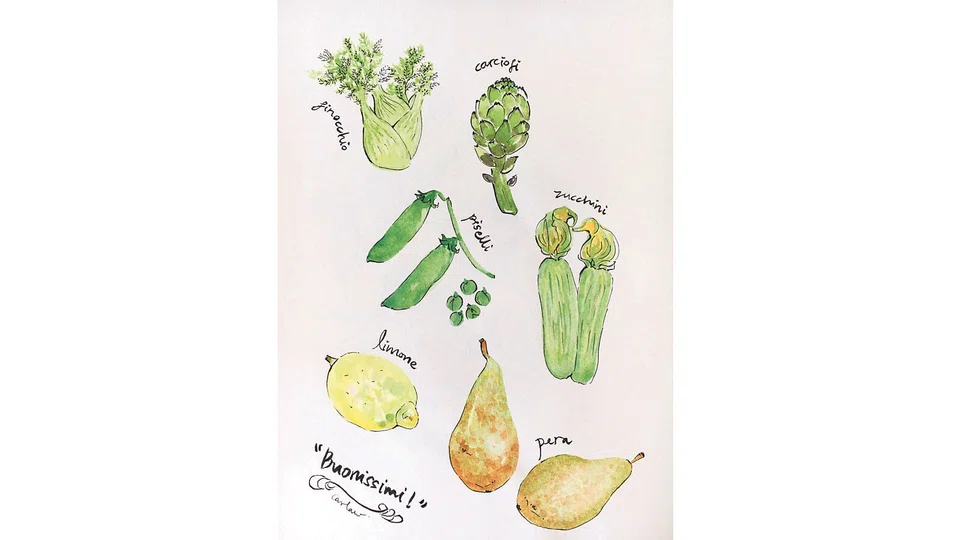 carciofi
finocchio
zucchini
piselli
limone
pera
"Buonissimi!"